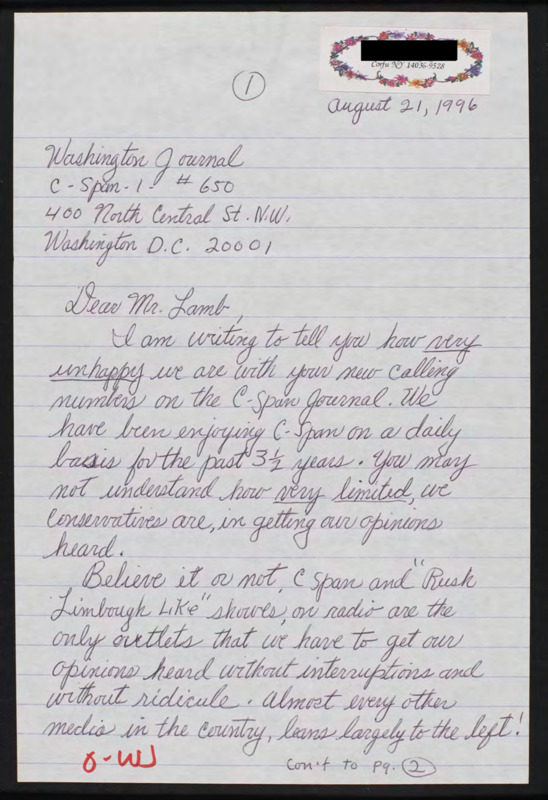 Corfu NY 14036-9528
1
August 21, 1996
Washington Journal
C-Span-1- # 650
400 North Central St. N.W.
Washington D.C. 20001
Dear Mr. Lamb,
I am writing to tell you how very
unhappy we are with your new calling
numbers on the C-Span Journal. We
have been enjoying C-Span on a daily
basis for the past 3½ years. You may
not understand how very limited, we
conservatives are, in getting our opinions
heard.
Believe it or not, C Span and "Rush
Limbough LIKE" showes, on radio are the
only outlets that we have to get our
opinions heard without interruptions and
without ridicule. Almost every other
media in the country, leans largely to the left!
O-W
Con't to pg. 2